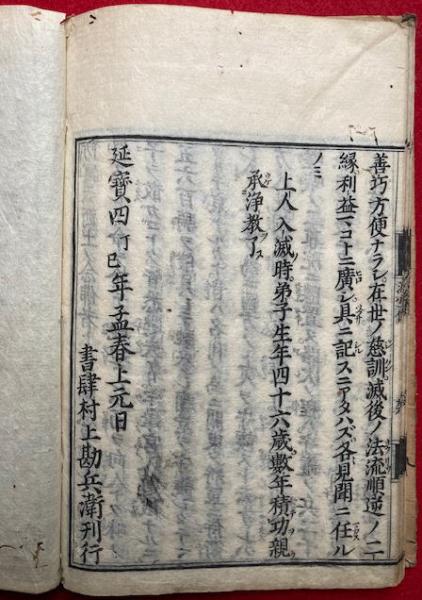 善巧方便ナラン在世ノ慈訓滅後ノ法流順逆ノ二
縁利益マコトニ廣シ具ニ記スニアタハズ各見聞ニ任ル
ノミ
上人入滅時弟子生年四十六歳數年積功親
承淨教了
延寳四丁巳年孟春上元日
書肆村上勘兵衛刊行